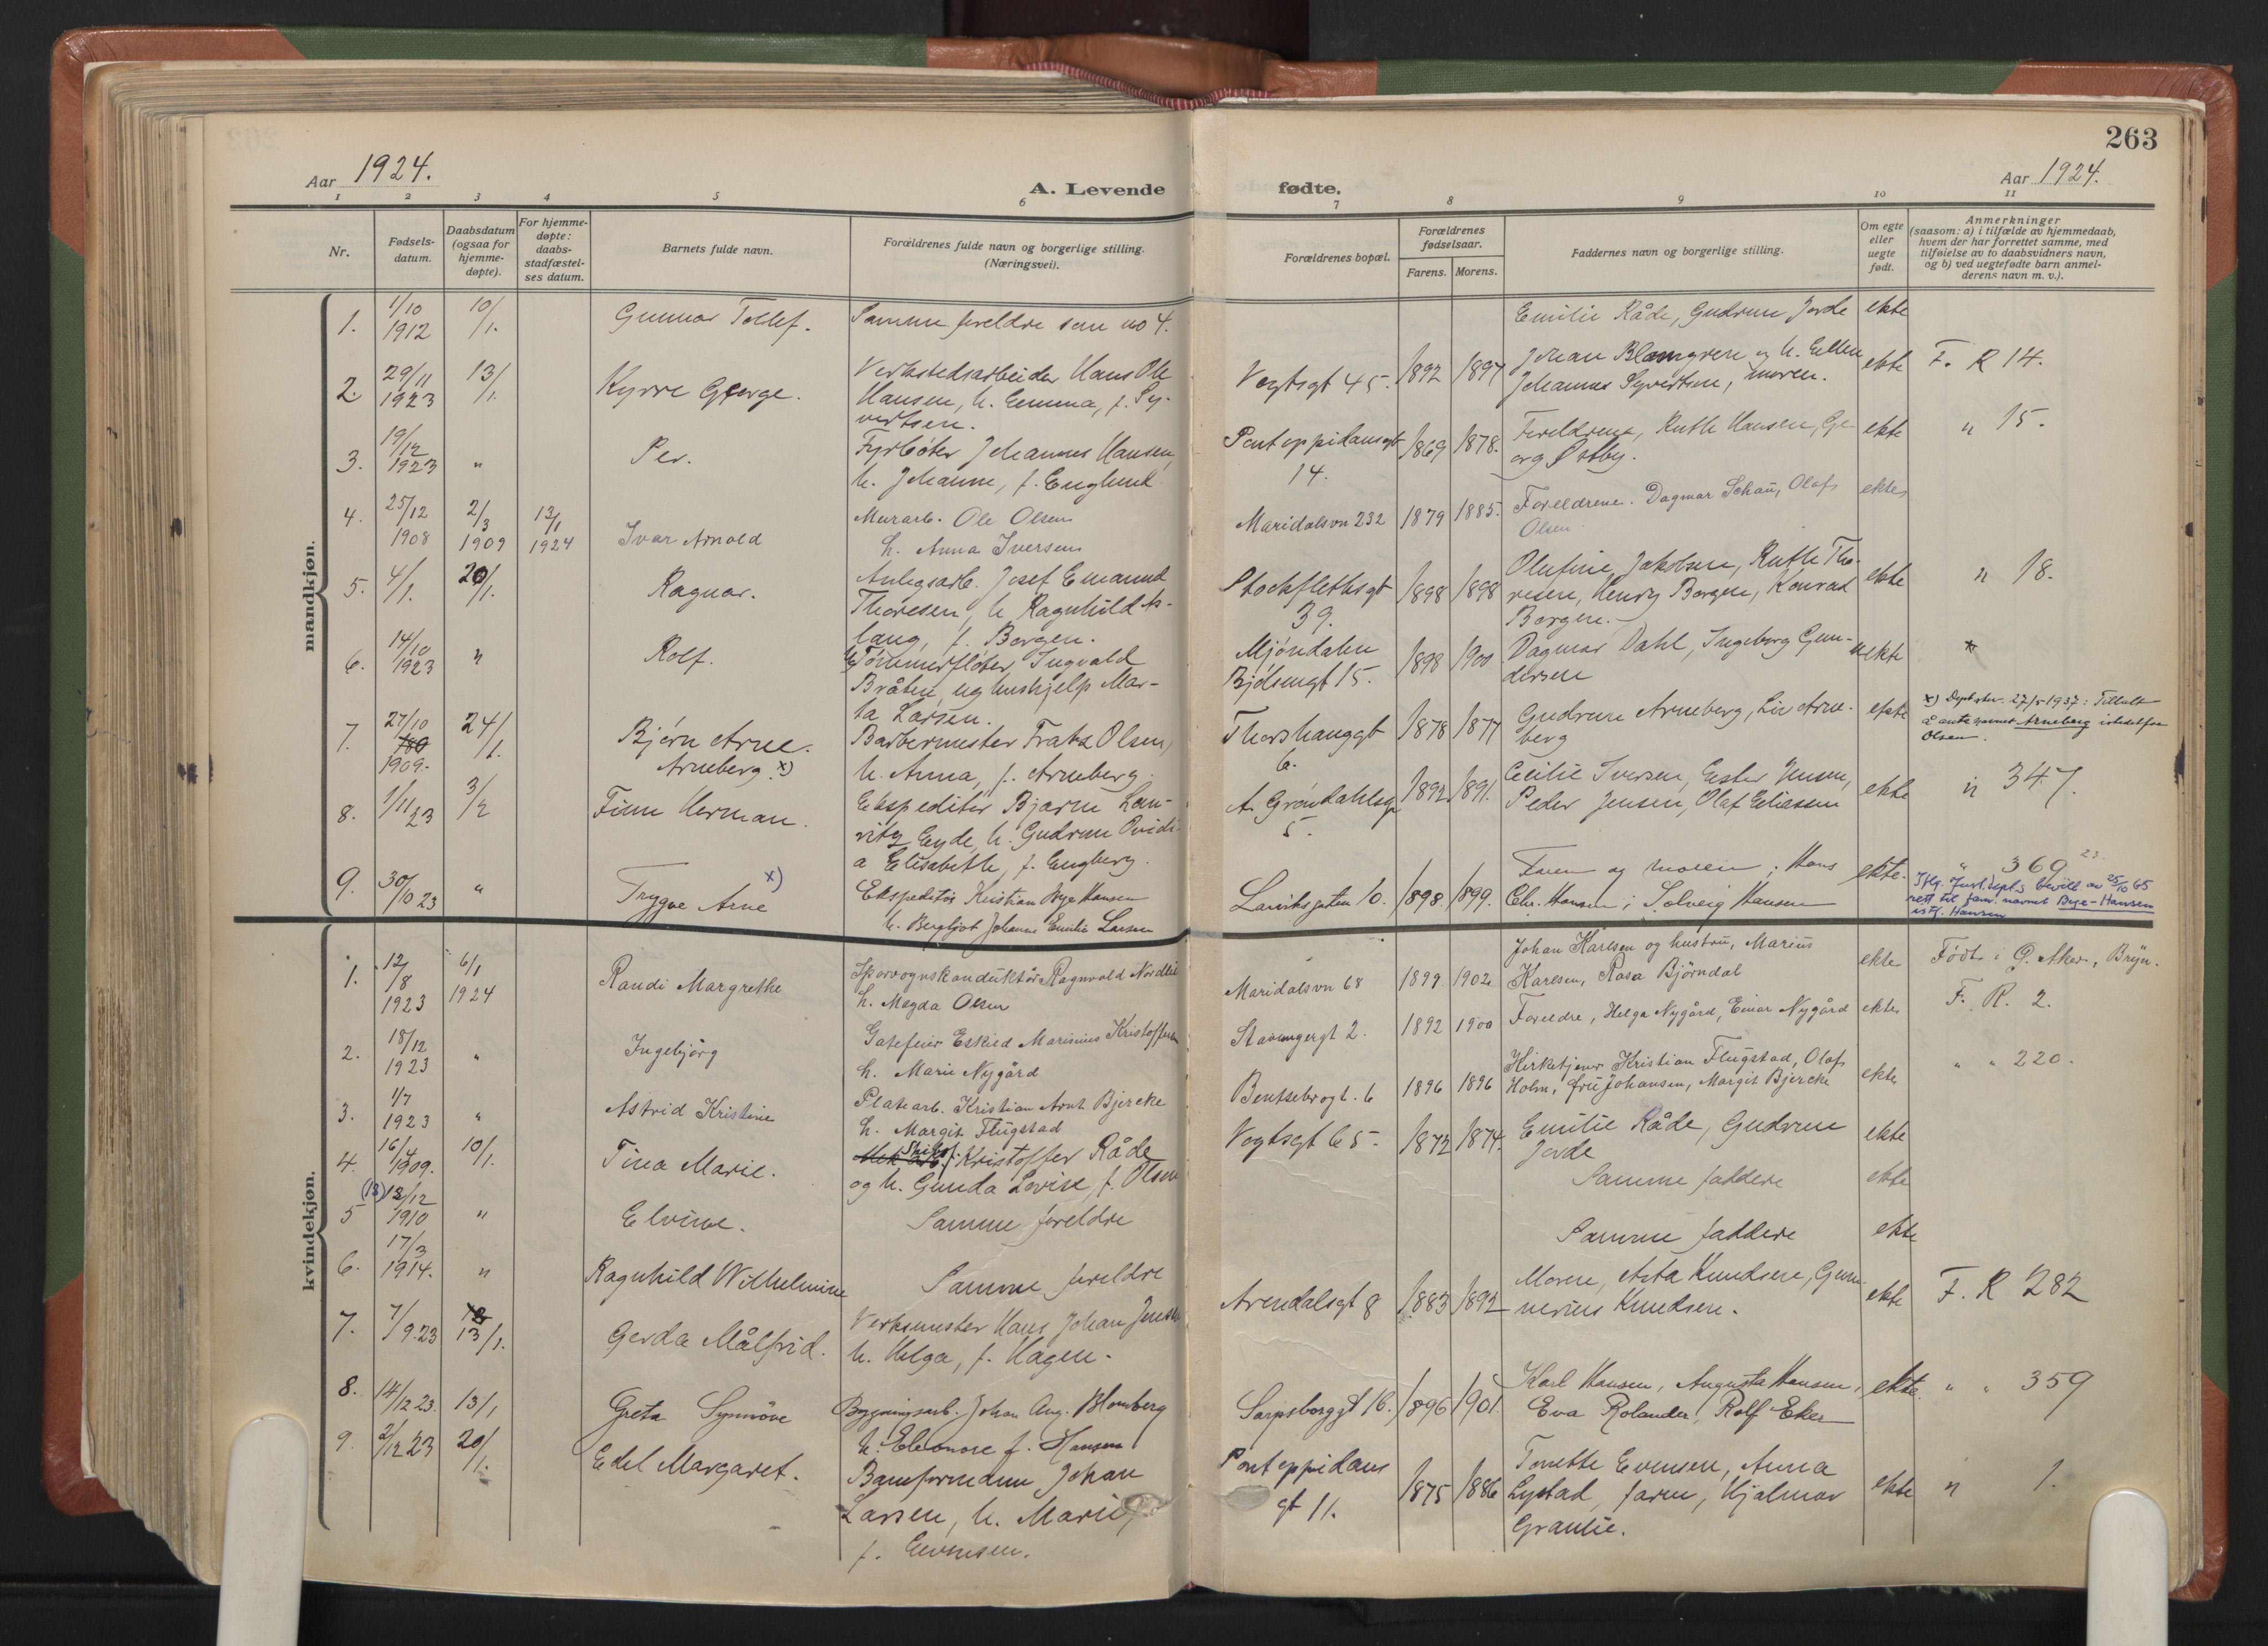 263
Aar 1924.
A. Levende
fødte.
Aar 1924.
1 2 3 4 5 6 7 8 9 10 11
Nr.
Fødsels-
datum.
Daabsdatum
(ogsaa for
hjemme-
døpte).
For hjemme-
døpte:
daabs-
stadfæstel-
ses datum.
Barnets fulde navn.
Forældrenes fulde navn og borgerlige stilling.
(Næringsvei).
Forældrenes bopæl.
Forældrenes
fødselsaar.
Farens. Morens.
Faddernes navn og borgerlige stilling.
Om egte
eller
uegte
født.
Anmerkninger
(saasom: a) i tilfælde av hjemmedaab,
hvem der har forrettet samme, med
tilføielse av to daabsvidners navn,
og b) ved uegtefødte barn anmel-
derens navn m. v.).
mandkjøn.
1.
1/10
1912
10/1.
Gunnar Tollef.
Samme foreldre som no 4.
Emilie Råde, Gudrun Jorde
ekte
2.
29/11
1923
13/1.
Kyrre George.
Verkstedsarbeider Hans Ole
Hansen, h. Emma, f. Sy-
vertsen.
Vogtsgt 45.
1892
1897
Johan Blomgren og h. Ellen
Johannes Syvertsen, moren.
ekte
F. R 14.
3.
19/12
1923
"
Per.
Fyrbøter Johannes Hansen
h. Johanne, f. Englund
Pontoppidansgt
14.
1869
1878.
Foreldrene, Ruth Hansen, Ge-
org Østby.
ekte
" 15.
4.
25/12
1908
2/3
1909
13/1
1924
Ivar Arnold
Murarb. Ole Olsen
h. Anna Iversen
Maridalsvn 232
1879
1885.
Foreldrene. Dagmar Schau, Olaf
Olsen
ekte
5.
4/1.
20/1.
Ragnar.
Anlegsarb. Josef Emanuel
Thoresen, h. Ragnhild As-
laug, f. Borgen.
Stockflethsgt
39.
1898
1898
Olufine Jakobsen, Ruth Tho-
resen, Henry Borgen, Konrad
Borgen.
ekte
" 18.
6.
14/10
1923
"
Rolf.
Tømmerfløter Ingvald
Bråten, ug hushjelp Mar-
ta Larsen.
Mjøndalen
Bjølsengt 15.
1898
1900
Dagmar Dahl, Ingeborg Gun-
dersen
uekte
7.
27/10
1909.
24/1.
Bjørn Arne.
Arneberg x)
Barbermester Frantz Olsen,
h. Anna, f. Arneberg.
Thorshauggt
6.
1878
1877
Gudrun Arneberg, Liv Arne-
berg
ekte
x) Dept. skr. 27/5 1937: Tillatt
å anta navnet Arneberg istedetfor
Olsen.
8.
1/11 23
3/2
Finn Herman.
Ekspeditør Bjarne Lau-
ritz Eyde, h. Gudrun Ovidi-
a Elisabeth, f. Engberg.
A. Grøndahlsgt
5.
1892
1891.
Cecilie Iversen, Ester Jensen,
Peder Jensen, Olaf Eliasen
ekte
" 347.
9.
30/10 23
"
Trygve Arne x)
Ekspeditør Kristian Bye Hansen
h. Bergljot Johanne Emilie Larsen
Larviksgaten 10.
1898.
1899.
Faren og moren; Hans
Chr. Hansen; Solveig Hansen
ekte.
" 369 23.
Iflg. Just.dept.s bevill. av 25/10 65
rett til fam. navnet Bye-Hansen
istf. Hansen
kvindekjøn.
1.
12/8
1923
6/1
1924
Randi Margrethe
Sporvognskonduktør Ragnvald Nordlie
h. Magda Olsen
Maridalsvn 68
1899.
1902.
Johan Karlsen og hustru, Marius
Karlsen, Rosa Bjørndal
ekte
Født i Ø. Aker, Bryn.
2.
18/12
1923
"
Ingebjørg
Gatefeier Eskild Marinius Kristoffersen
h. Marie Nygård
Stavangergt 2.
1892
1900
Foreldre, Helga Nygård, Einar Nygård
ekte
F. R. 2.
3.
1/7
1923
"
Astrid Kristine
Platearb. Kristian Arnt Bjercke
h. Margit Flugstad
Bentsebrogt. 6
1896
1896
Kirketjener Kristian Flugstad, Olaf
Holm, fru Johansen, Margit Bjercke
ekte
" " 220.
4.
16/4
1909.
10/1.
Tina Marie.
Kristoffer Råde
og h. Gunda Lovise, f. Olsen
Vogtsgt 65.
1872
1874.
Emilie Råde, Gudrun
Jorde
ekte
5
(13) 13/12
1910
"
Elvine.
Samme foreldre
Samme faddere
ekte
6.
17/3
1914.
"
Ragnhild Wilhelmine
Samme foreldre
Samme faddere
ekte
7.
7/9.23
13/1.
Gerda Målfrid.
Verksmester Hans Johan Jensen
h. Helga, f. Hagen.
Arendalsgt 8
1883
1892
Moren, Asta Knudsen, Gun-
nerius Knudsen.
ekte
F. R 282
8.
14/12 23.
13/1
Greta Synnøve
Bygningsarb. Johan Aug. Blomberg
h. Eleonore f. Hansen
Sarpsborggt 16.
1896
1901.
Karl Hansen, Augusta Hansen,
Eva Rolander, Rolf Eker
ekte.
" " 359
9.
2/12 23
20/1.
Edel Margaret.
Baneformann Johan
Larsen, h. Marie,
f. Evensen.
Pontoppidans
gt 11.
1875
1886
Tonette Evensen, Anna
Lystad, faren, Hjalmar
Granlie.
ekte
" 1.